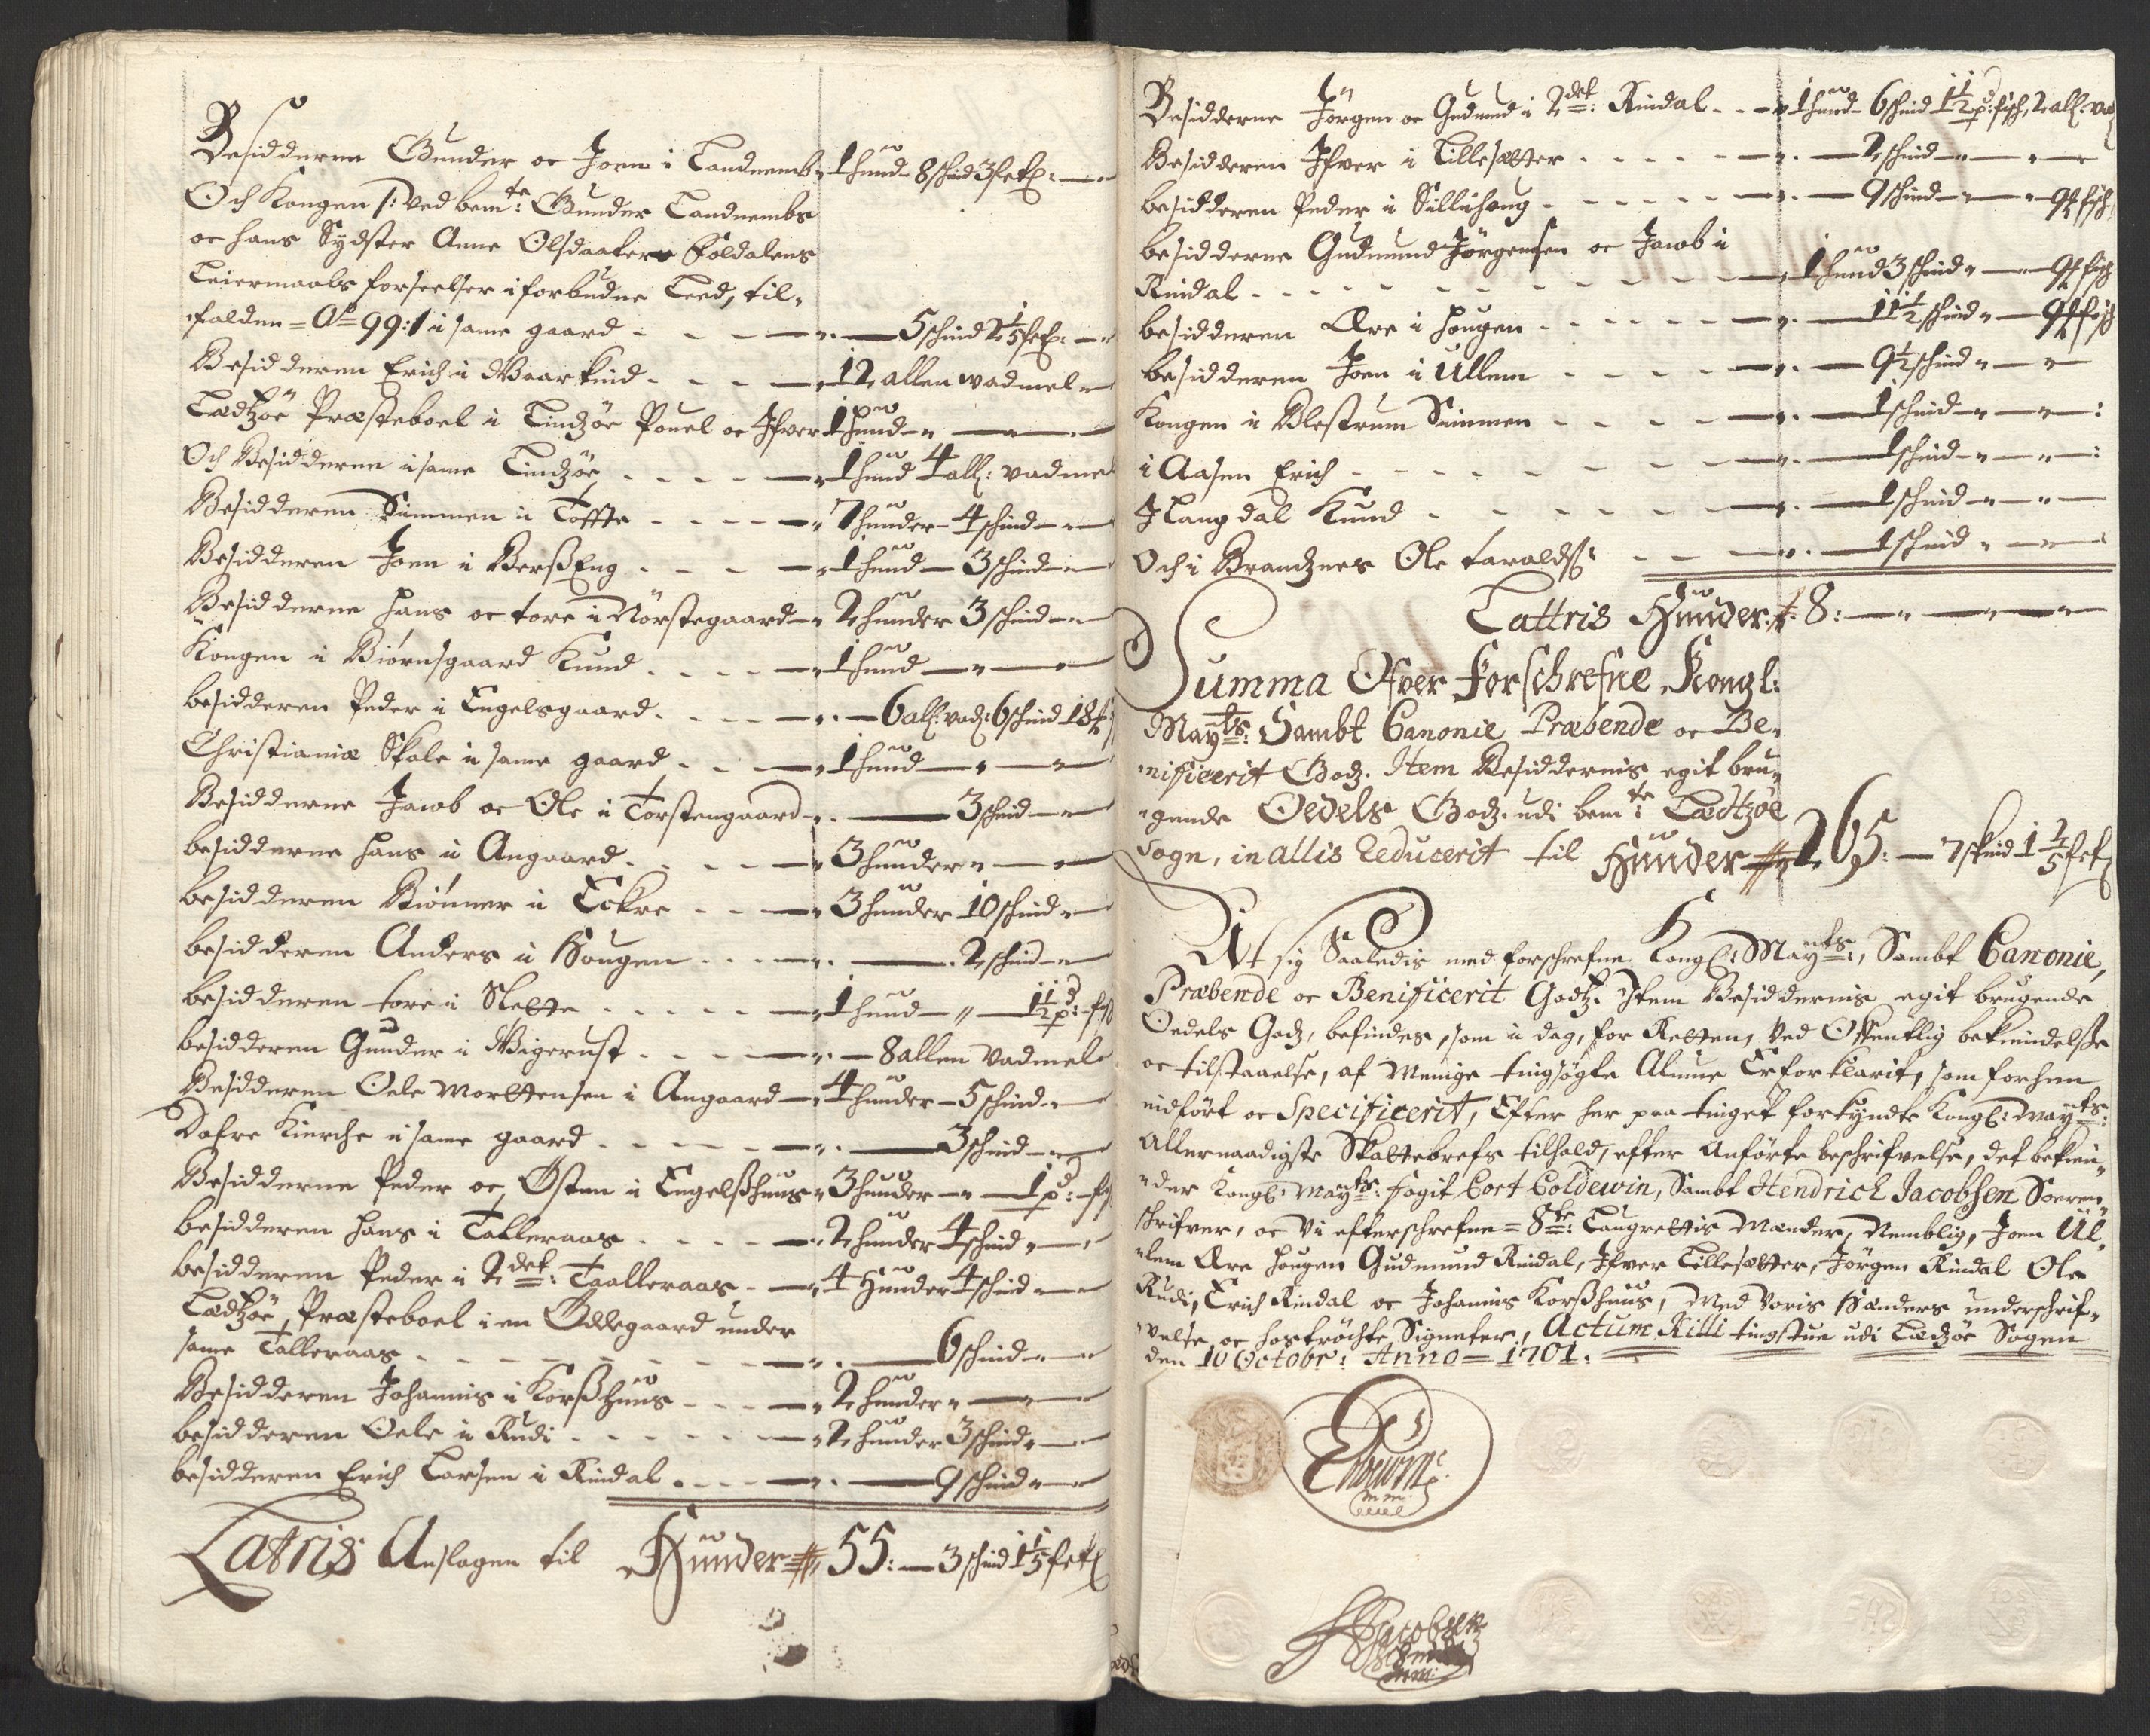 Besidderen Gunder oc Joen i Landnemb 1 hund 8 schind 3 fetl:
Och Kongen /: ved bemte: Gunder Landnembs
oc hans Sydster Anne Olsdaater Foldalens
Leiermaals forseelser i forbudne Leed, til-
falden = Ao 99:/ i same gaard - - - 5 schind 2 1/5 fetl:
Besidderen Erich i Baarkind - - - 12 allen wadmel
Lædzöe Præsteboel i Lindzöe Pouel oc Ifver 1 hund
Och Besidderne i same Lindzöe - - - 1 hund 4 all: vadmel
Besidderen Simmen i Toffte - - - 7 hunder 4 schind
Besidderen Joen i BerßEng - - - 1 hund 3 schind
Besidderne Hans oc tore i Nörstegaard 2 hunder 3 schind
Kongen i Biörnsgaard Knud - - - 1 hund
besidderen Peder i Engelsgaard - - - 6 all: vad: 6 schind 18
Christianiæ Skole i same gaard - - - 1 hund
Besidderne Jacob oc Ole i Torstengaard - 3 schind
besidderne Hans i Angaard - - - 3 hunder
besidderen Biönner i Eckre - - - 3 hunder 10 schind
besidderen Anders i Hougen - - - 2 schind
besidderen tore i Slette - - - 1 hund 1 1/2 pd: fisch
besidderen Gunder i Bigerust - - - 8 allen vadmel
Besidderen Oele Morttensen i Angaard - 4 hunder 5 schind
Dofre Kierche i same gaard - - - 3 schind
Besidderne Peder oc Östen i Engelßhuus 3 hunder 1 pd: fisch
besidderen Hans i Talleraas - - - 2 hunder 4 schind
besidderen Peder i 2det: Taalleraas - 4 Hunder 4 schind
Lædzöe, Præsteboel i en Ödegaard under
same Talleraas - - - 6 schind
Besidderen Johannis i Korßhuus - - - 2 hunder
besidderen Oele i Rudi - - - 2 hunder 3 schind
besidderen Erich Larsen i Rindal - - - 9 schind
Latris Anslagen til Hunder 55: 3 schind 1 1/5 fetl
Besidderne Jörgen oc Gudmund i 2det: Rindal - - 1 hund 6 schind 1 1/2 pd: fisch, 2 all: vad
Besidderen Ifver i Lillesætter - - - 2 schind
besidderen Peder i Sillihoug - - - 9 schind 9 fisch
besidderne Gudmund Jörgensen oc Jacob i
Rindal - - - 1 hund 3 schind 9 fisch
besidderen Are i Hougen - - - 11 1/2 schind 9 fisch
besidderen Joen i Ullem - - - 9 1/2 schind
Kongen i Blestrum Simmen - - - 1 schind
i Aasen Erich - - - 1 schind
I Langdal Knud - - - 1 schind
Och i Brandznes Ole taralds: - - 1 schind
Lattris Hunder 8:
Summa Ofver Forschrefne Kongl:
Mayts: Sambt Canonie Præbende oc Be-
nificerit Godz. Item Besiddernis egit bru-
gende Oedels Godz. udi bemte: Lædzöe
Sogn, in allis Reducerit til Hunder 265: 7 schind 1 2/5 fetl
At sig Saaledis med forschrefne Kongl: Mayts:, Sambt Canonie,
Præbende oc Benificerit Godtz. Item Besiddernis egit brugende
Oedels Godz, befindes, som i dag, for Retten, ved Offentlig bekiendelse
oc tilstaaelse, af Menige tingsögte Almue Erforklarit, som forhen
indfört oc Specificerit, Efter her paa tinget forkyndte Kongl: Mayts:
Allernaadigste Skattebrefs tilhold, efter Anförte beskrifvelse, det bekien-
der Kongl: Mayts: Fogit Cort Coldewin, Sambt Hendrich Jacobsen Soren-
schrifver, oc vi efterschrefne = 8te: Laugrettis Mænder, Nemblig, Joen Ul-
lem Are Hougen Gudmund Rindal, Ifver Lillesætter, Jörgen Rindal Ole
Rudi, Erich Rindal oc Johannis Korßhuus, Med Voris Hænders underschrif-
velse oc hoströchte Signeter, Actum Killi tingstue udi Lædzöe Sogen
den 10 Octobr: Anno = 1701.
HJacobsen